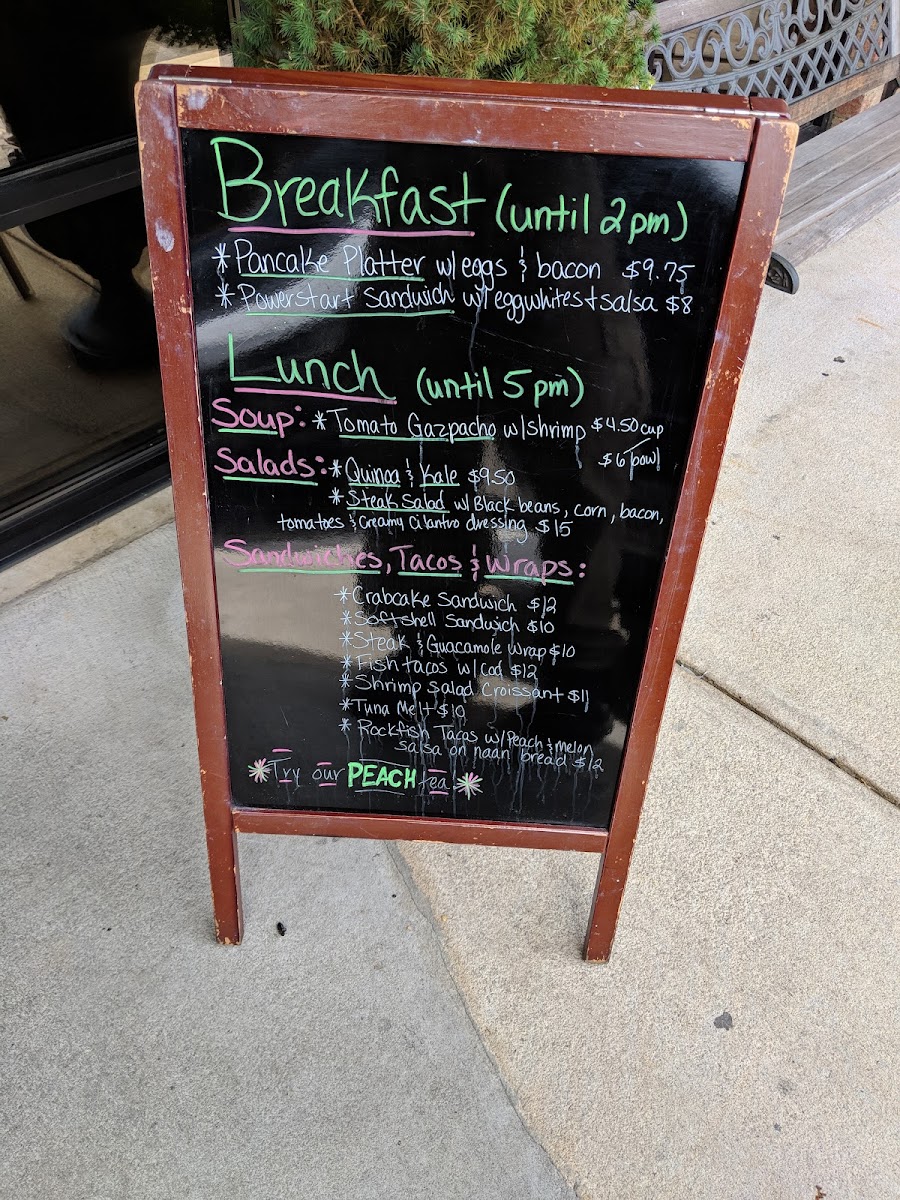 Breakfast (until 2pm)
*Pancake Platter w/eggs & bacon $9.75
*Powerstart Sandwich w/eggwhites+salsa $8
Lunch (until 5pm)
Soup: *Tomato Gazpacho w/shrimp $4.50 cup
$6 bowl
Salads: *Quinoa & Kale $9.50
*Steak Salad w/Black beans, corn, bacon,
tomatoes & Creamy Cilantro dressing $15
Sandwiches, Tacos & Wraps:
*Crabcake Sandwich $12
*Softshell Sandwich $10
*Steak & Guacamole Wrap $10
*Fish tacos w/Cod $12
*Shrimp Salad Croissant $11
*Tuna Melt $10
*Rockfish Tacos w/Peach & melon
salsa on naan bread $12
*Try our PEACH tea*